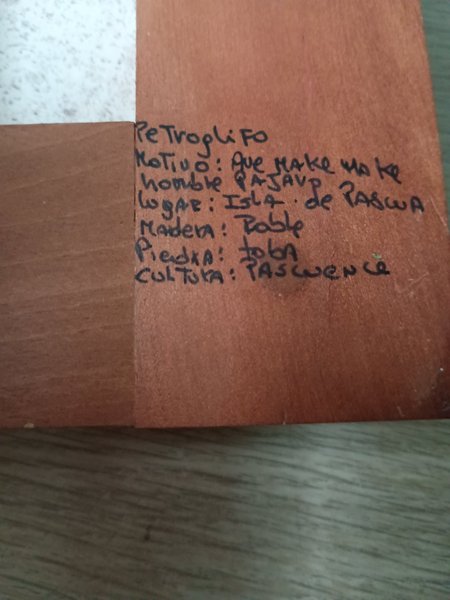 PeTroglifo
Motivo: Ave Make Make
hombre PAJARO
Lugar: Isla de PASCUA
Madera: Roble
Piedra: toba
Cultura: PASCUENCE